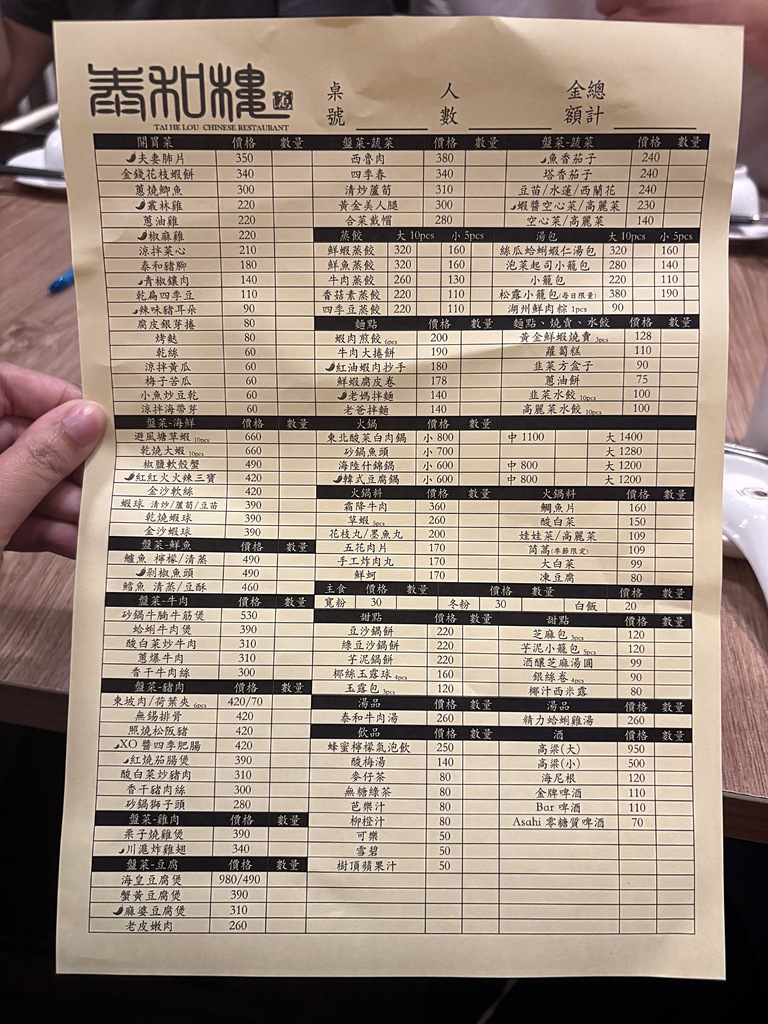 泰和樓
TAI HE LOU CHINESE RESTAURANT
桌號 人數 金額總計
開胃菜 價格 數量
夫妻肺片 350
金錢花枝蝦餅 340
蔥燒鯽魚 300
叢林雞 220
蔥油雞 220
椒麻雞 220
涼拌菜心 210
泰和豬腳 180
青椒鑲肉 140
乾扁四季豆 110
辣味豬耳朵 90
腐皮銀芽捲 80
烤麩 80
乾絲 60
涼拌黃瓜 60
梅子苦瓜 60
小魚炒豆乾 60
涼拌海帶芽 60
盤菜-海鮮 價格 數量
避風塘草蝦 10pcs 660
乾燒大蝦 10pcs 660
椒鹽軟殼蟹 490
紅紅火火辣三寶 420
金沙軟絲 420
蝦球 清炒/蘆筍/豆苗 390
乾燒蝦球 390
金沙蝦球 390
盤菜-鮮魚 價格 數量
鱸魚 檸檬/清蒸 490
剁椒魚頭 490
鱈魚 清蒸/豆酥 460
盤菜-牛肉 價格 數量
砂鍋牛腩牛筋煲 530
蛤蜊牛肉煲 390
酸白菜炒牛肉 310
蔥爆牛肉 310
香干牛肉絲 300
盤菜-豬肉 價格 數量
東坡肉/荷葉夾 6pcs 420/70
無錫排骨 420
照燒松阪豬 420
XO 醬四季肥腸 420
紅燒茄腸煲 390
酸白菜炒豬肉 310
香干豬肉絲 300
砂鍋獅子頭 280
盤菜-雞肉 價格 數量
栗子燒雞煲 390
川滬炸雞翅 340
盤菜-豆腐 價格 數量
海皇豆腐煲 980/490
蟹黃豆腐煲 390
麻婆豆腐煲 310
老皮嫩肉 260
盤菜-蔬菜 價格 數量
西魯肉 380
四季春 340
清炒蘆筍 310
黃金美人腿 300
合菜戴帽 280
蒸餃 大 10pcs 小 5pcs
鮮蝦蒸餃 320 160
鮮魚蒸餃 320 160
牛肉蒸餃 260 130
香菇素蒸餃 220 110
四季豆蒸餃 220 110
麵點 價格 數量
蝦肉煎餃 6pcs 200
牛肉大捲餅 190
紅油蝦肉抄手 180
鮮蝦腐皮卷 178
老媽拌麵 140
老爸拌麵 140
盤菜-蔬菜 價格 數量
魚香茄子 240
塔香茄子 240
豆苗/水蓮/西蘭花 240
蝦醬空心菜/高麗菜 230
空心菜/高麗菜 140
湯包 大 10pcs 小 5pcs
絲瓜蛤蜊蝦仁湯包 320 160
泡菜起司小籠包 280 140
小籠包 220 110
松露小籠包(每日限量) 380 190
湖州鮮肉粽 1pcs 90
麵點、燒賣、水餃 價格 數量
黃金鮮蝦燒賣 3pcs 128
蘿蔔糕 110
韭菜方盒子 90
蔥油餅 75
韭菜水餃 10pcs 100
高麗菜水餃 10pcs 100
火鍋 價格 數量
東北酸菜白肉鍋 小 800 中 1100 大 1400
砂鍋魚頭 小 700 大 1280
海陸什錦鍋 小 600 中 800 大 1200
韓式豆腐鍋 小 600 中 800 大 1200
火鍋料 價格 數量
霜降牛肉 360
草蝦 5pcs 260
花枝丸/墨魚丸 200
五花肉片 170
手工炸肉丸 170
鮮蚵 170
火鍋料 價格 數量
鯛魚片 160
酸白菜 150
娃娃菜/高麗菜 109
茼蒿(季節限定) 109
大白菜 99
凍豆腐 80
主食 價格 數量 價格 數量 價格 數量
寬粉 30 冬粉 30 白飯 20
甜點 價格 數量
豆沙鍋餅 220
綠豆沙鍋餅 220
芋泥鍋餅 220
椰絲玉露球 4pcs 160
玉露包 3pcs 120
甜點 價格 數量
芝麻包 3pcs 120
芋泥小籠包 5pcs 120
酒釀芝麻湯圓 99
銀絲卷 4pcs 90
椰汁西米露 80
湯品 價格 數量
泰和牛肉湯 260
湯品 價格 數量
精力蛤蜊雞湯 260
飲品 價格 數量
蜂蜜檸檬氣泡飲 250
酸梅湯 140
麥仔茶 80
無糖綠茶 80
芭樂汁 80
柳橙汁 80
可樂 50
雪碧 50
樹頂蘋果汁 50
酒 價格 數量
高粱(大) 950
高粱(小) 500
海尼根 120
金牌啤酒 110
Bar 啤酒 110
Asahi 零糖質啤酒 70